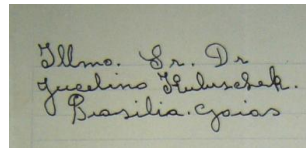 Illmo. Sr. Dr
Jucelino Kubuschek.
Brasilia. Goias